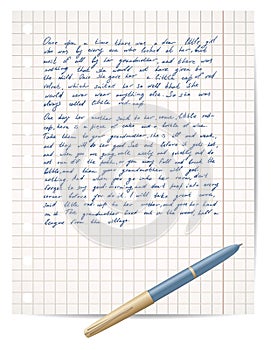 Once upon a time there was a dear little girl
who was by every one who looked at her, but
most of all by her grandmother, and there was
nothing that she would not have given to
the child. Once she gave her a little cap of red
velvet, which suited her so well that she
would never wear anything else. So she was
always called little red-cap.
One day her mother said to her come, little red-
cap, here is a piece of cake and a bottle of wine.
Take them to your grandmother, she is ill and weak,
and they will do her good. Set out before it gets hot,
and when you are going, walk nicely and quietly and do
not run off the path, or you may fall and break the
bottle, and then your grandmother will get
nothing. And when you go into her room, don't
forget to say, good-morning, and don't peep into every
corner before you do it. I will take great care,
said little red-cap to her mother, and gave her hand
on it. The grandmother lived out in the wood, half a
league from the village.